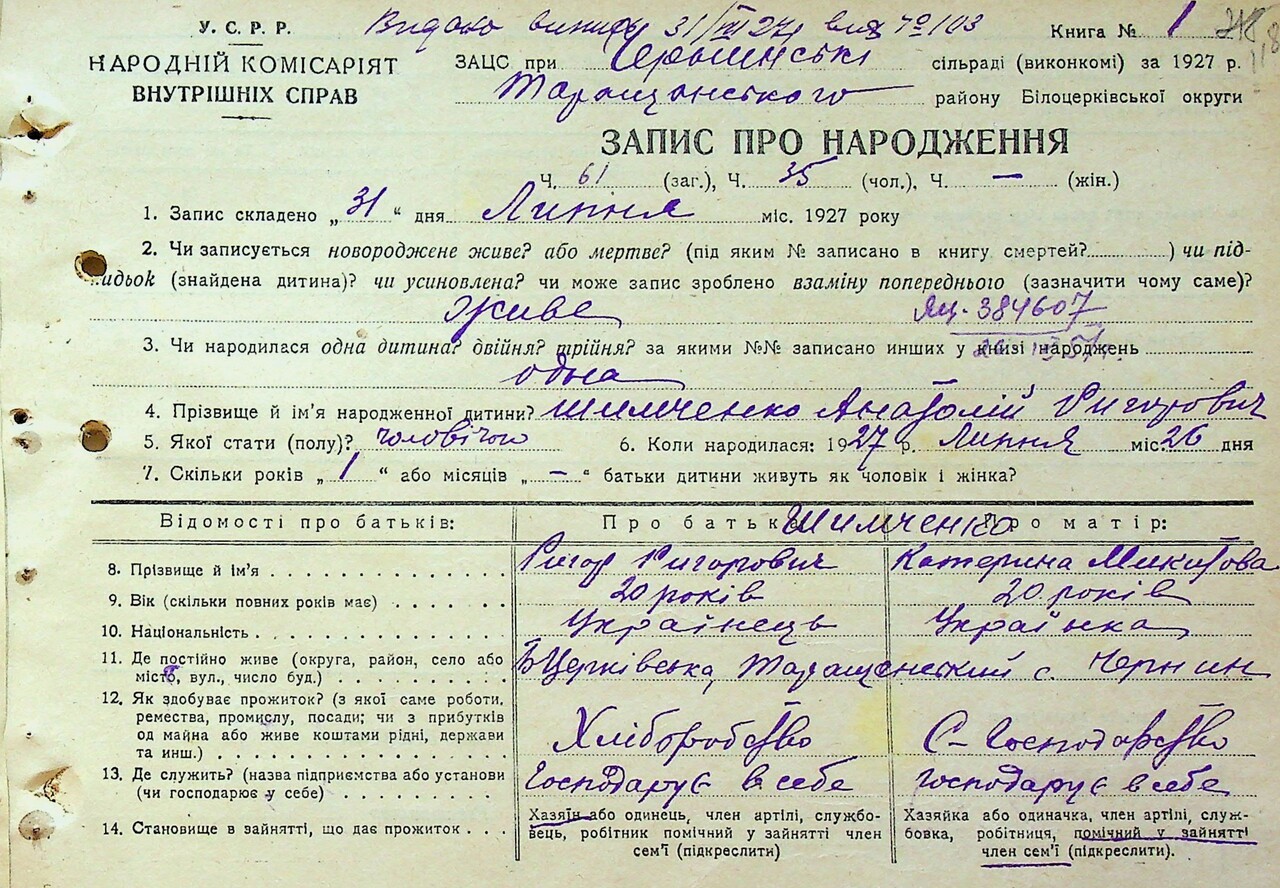 У. С. Р. Р.
НАРОДНІЙ КОМІСАРІЯТ
ВНУТРІШНІХ СПРАВ
Видано 31/VII 27 р. № 103
Книга № 1
ЗАЦС при сільраді (виконкомі) за 1927 р.
Таращанського району Білоцерківської округи
ЗАПИС ПРО НАРОДЖЕННЯ
Ч. 61 (заг.), Ч. 35 (чол.), Ч. — (жін.)
1. Запис складено „31“ дня Липня міс. 1927 року
2. Чи записується новороджене живе? або мертве? (під яким № записано в книгу смертей?..........) чи під-
кидьок (знайдена дитина)? чи усиновлена? чи може запис зроблено взаміну попереднього (зазначити чому саме)?
Живе 384607
3. Чи народилася одна дитина? двійня? трійня? за якими №№ записано инших у книзі народжень
одна
4. Прізвище й ім’я народженної дитини? Шимченко Анатолій Григорович
5. Якої стати (полу)? чоловічого 6. Коли народилася: 1927 р. Липня міс. 26 дня
7. Скільки років „1“ або місяців „—“ батьки дитини живуть як чоловік і жінка?
Відомості про батьків: Про батька: Про матір:
Шимченко
8. Прізвище й ім’я Григор Григорович Катерина Микитова
9. Вік (скільки повних років має) 20 років 20 років
10. Національність Українець Українка
11. Де постійно живе (округа, район, село або Б Церківська, Таращанський с. Чернин
місто, вул., число буд.)
12. Як здобуває прожиток? (з якої саме роботи,
ремества, промислу, посади; чи з прибутків
од майна або живе коштами рідні, держави Хліборобство С-Господарство
та инш.)
13. Де служить? (назва підприємства або установи Господарує в себе Господарує в себе
(чи господарює у себе)
14. Становище в зайнятті, що дає прожиток
Хазяїн або одинець, член артілі, службо-
вець, робітник помічний у зайнятті член
сем’ї (підкреслити)
Хазяйка або одиначка, член артілі, служ-
бовка, робітниця, помічний у зайнятті
член сем’ї (підкреслити).